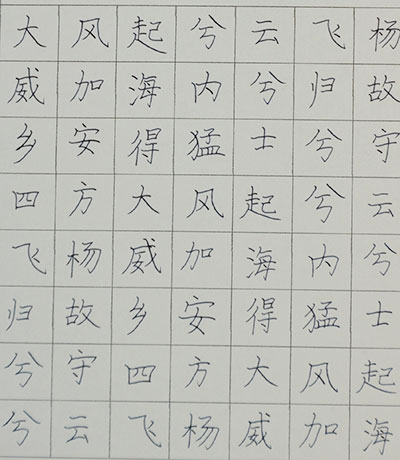 大风起兮云飞杨
威加海内兮归故
乡安得猛士兮守
四方大风起兮云
飞杨威加海内兮
归故乡安得猛士
兮守四方大风起
兮云飞杨威加海